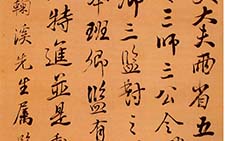 大夫兩省五
三師三公令
卿三監對之
本班卿監有
特進並是
溪先生属臨